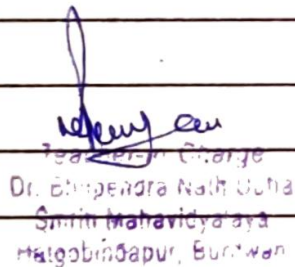 Teacher-in Charge
Dr. Bhupendra Nath Dutta
Smriti Mahavidyalaya
Hatgobindapur, Burdwan